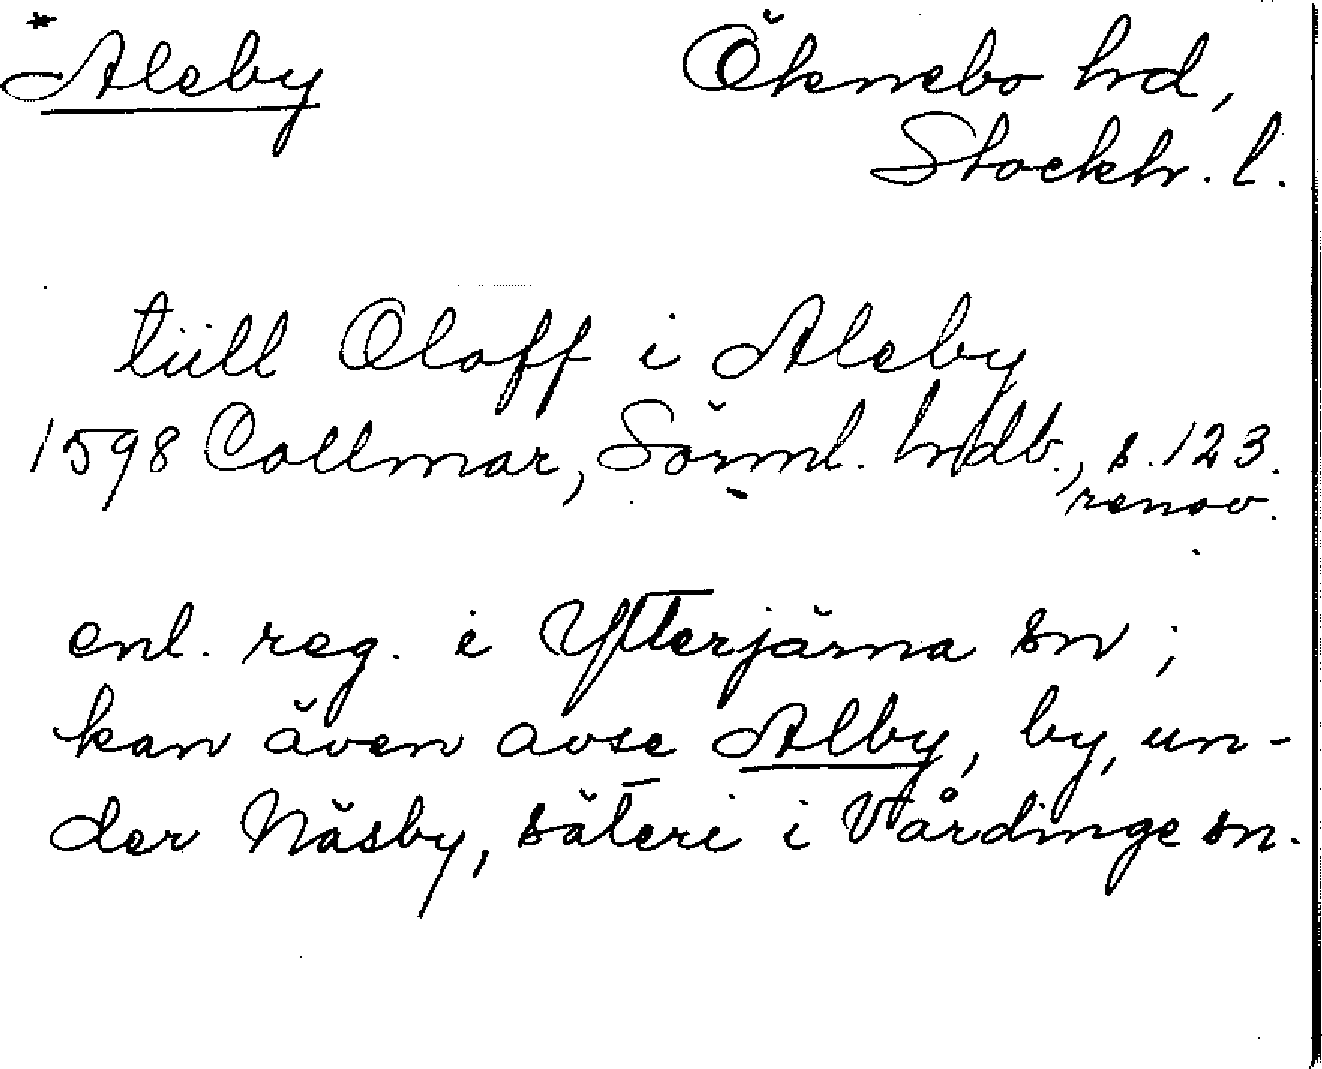 * Aleby Öknebo hd,
Stockh. l.
tiill Oloff i Aleby
1598 Collmar, Sörml. hdb., s. 123.
renov.
enl. reg. i Ytterjärna sn;
kan även avse Alby, by, un-
der Näsby, säteri i Vårdinge sn.